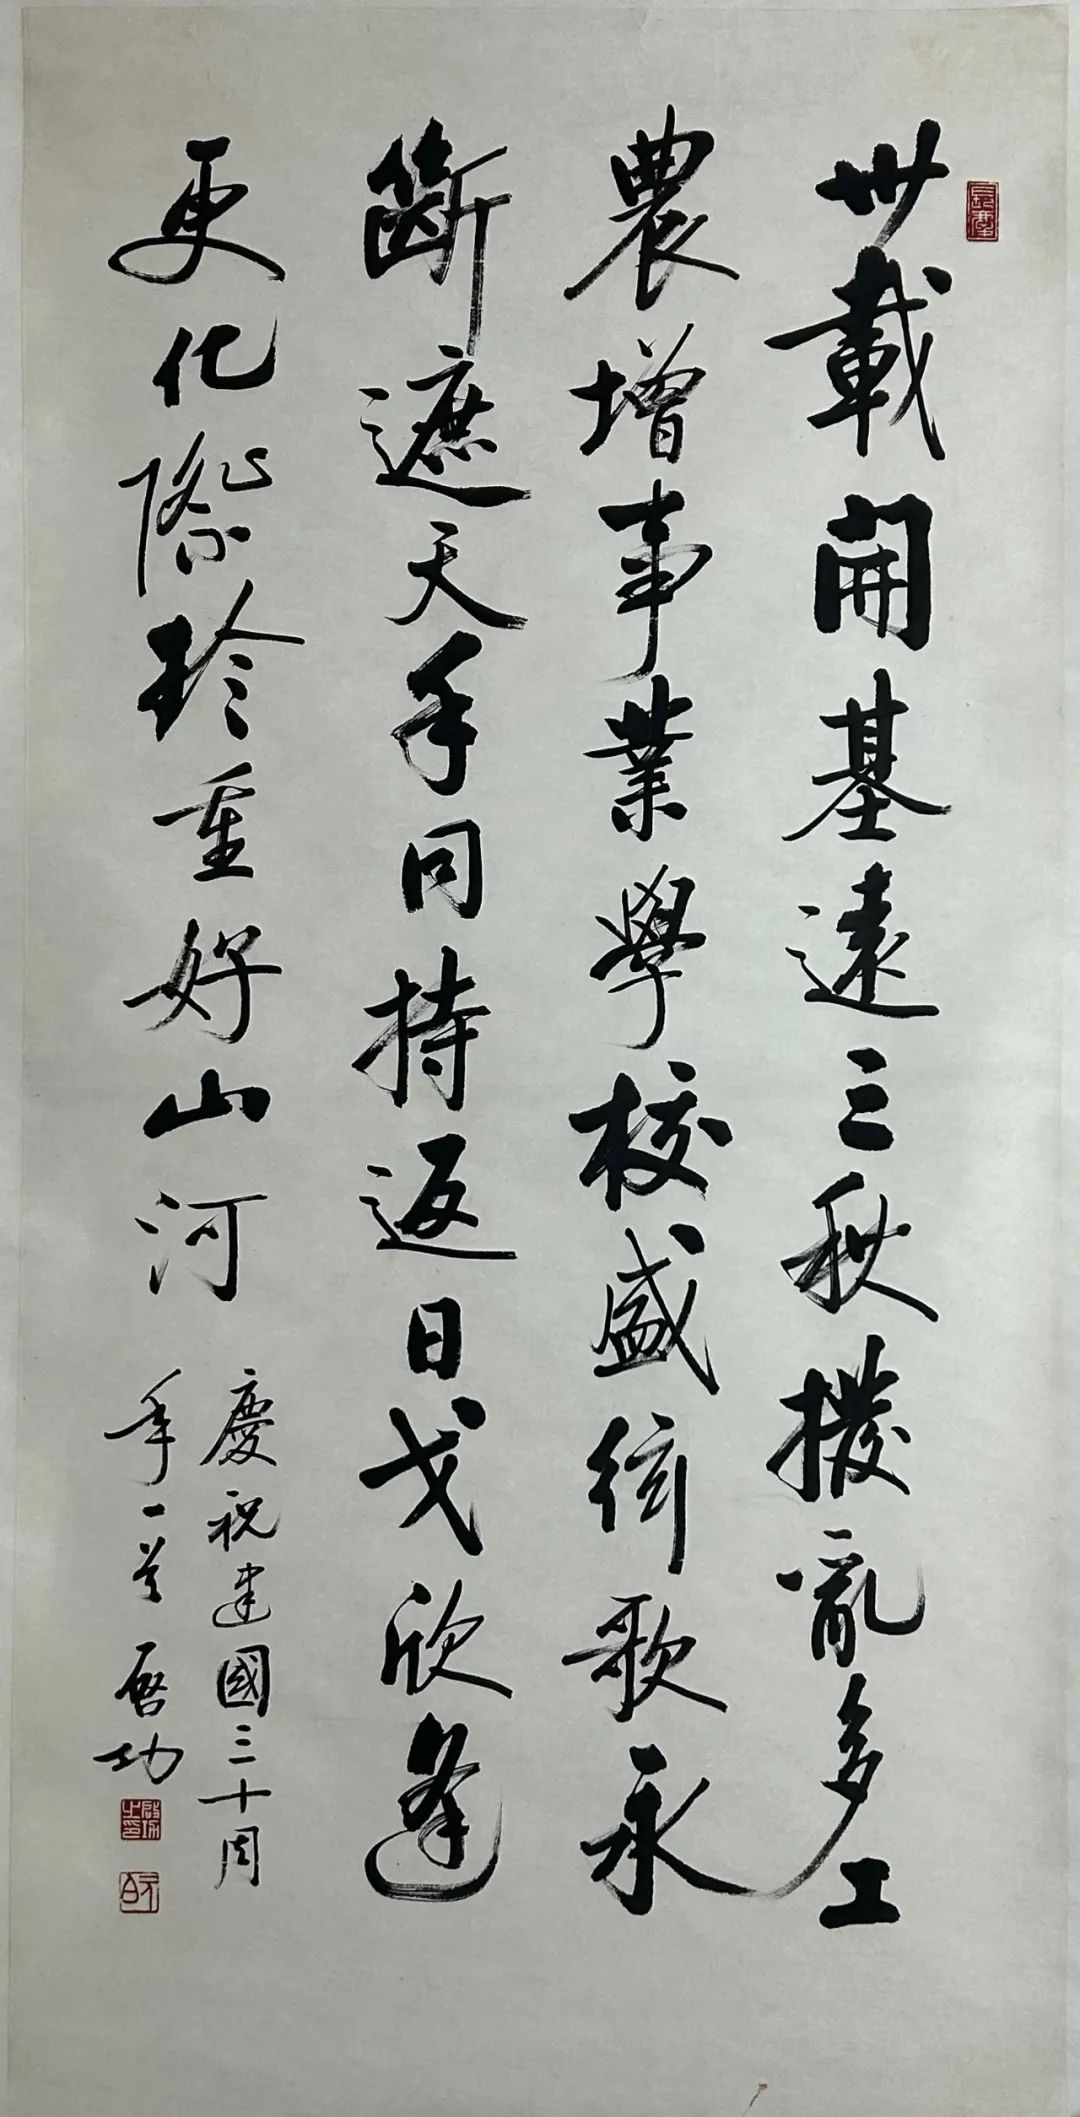 卅載開基遠三秋撥亂多工
農增事業學校盛絃歌永
斷遮天手同持返日戈欣逢
更化際珍重好山河
慶祝建國三十周
年一首 啓功
啟功之印